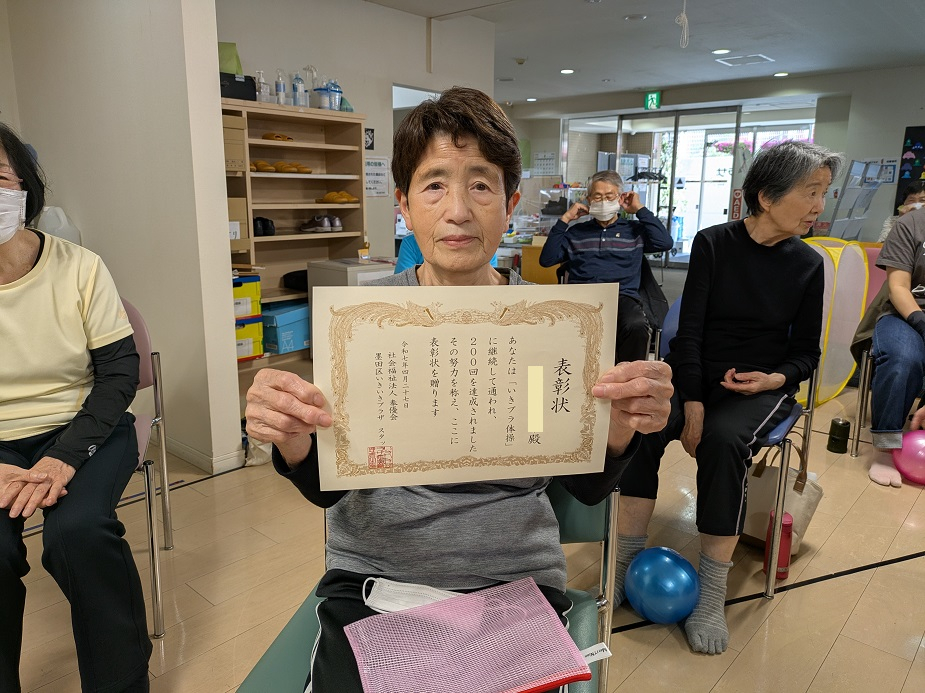 表彰状
殿
あなたは「いきプラ体操」
に継続して通われ、
200回を達成されました
その努力を称え、ここに
表彰状を贈ります
令和七年四月二十七日
社会福祉法人 奉優会
墨田区いきいきプラザ スタッフ